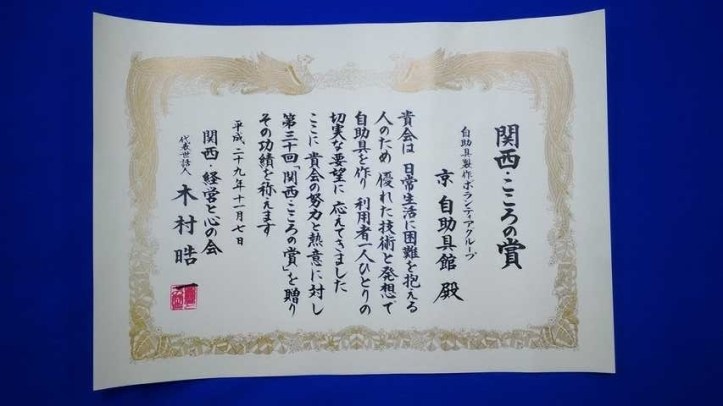 関西・こころの賞
自助具製作ボランティアグループ
京 自助具館 殿
貴会は 日常生活に困難を抱える
人のため 優れた技術と発想で
自助具を作り 利用者一人ひとりの
切実な要望に 応えてきました
ここに 貴会の努力と熱意に対し
第三十回「関西・こころの賞」を贈り
その功績を称えます
平成二十九年十一月七日
関西・経営と心の会
代表世話人 木村 皓一